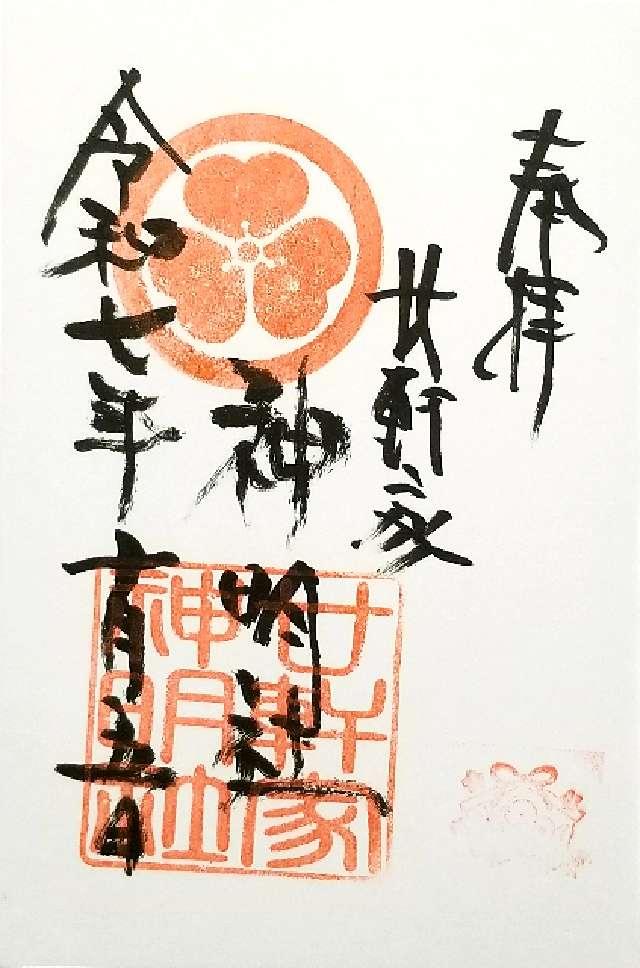 奉拝
廿軒家
神明社
令和七年
月五日
廿軒家
神明社